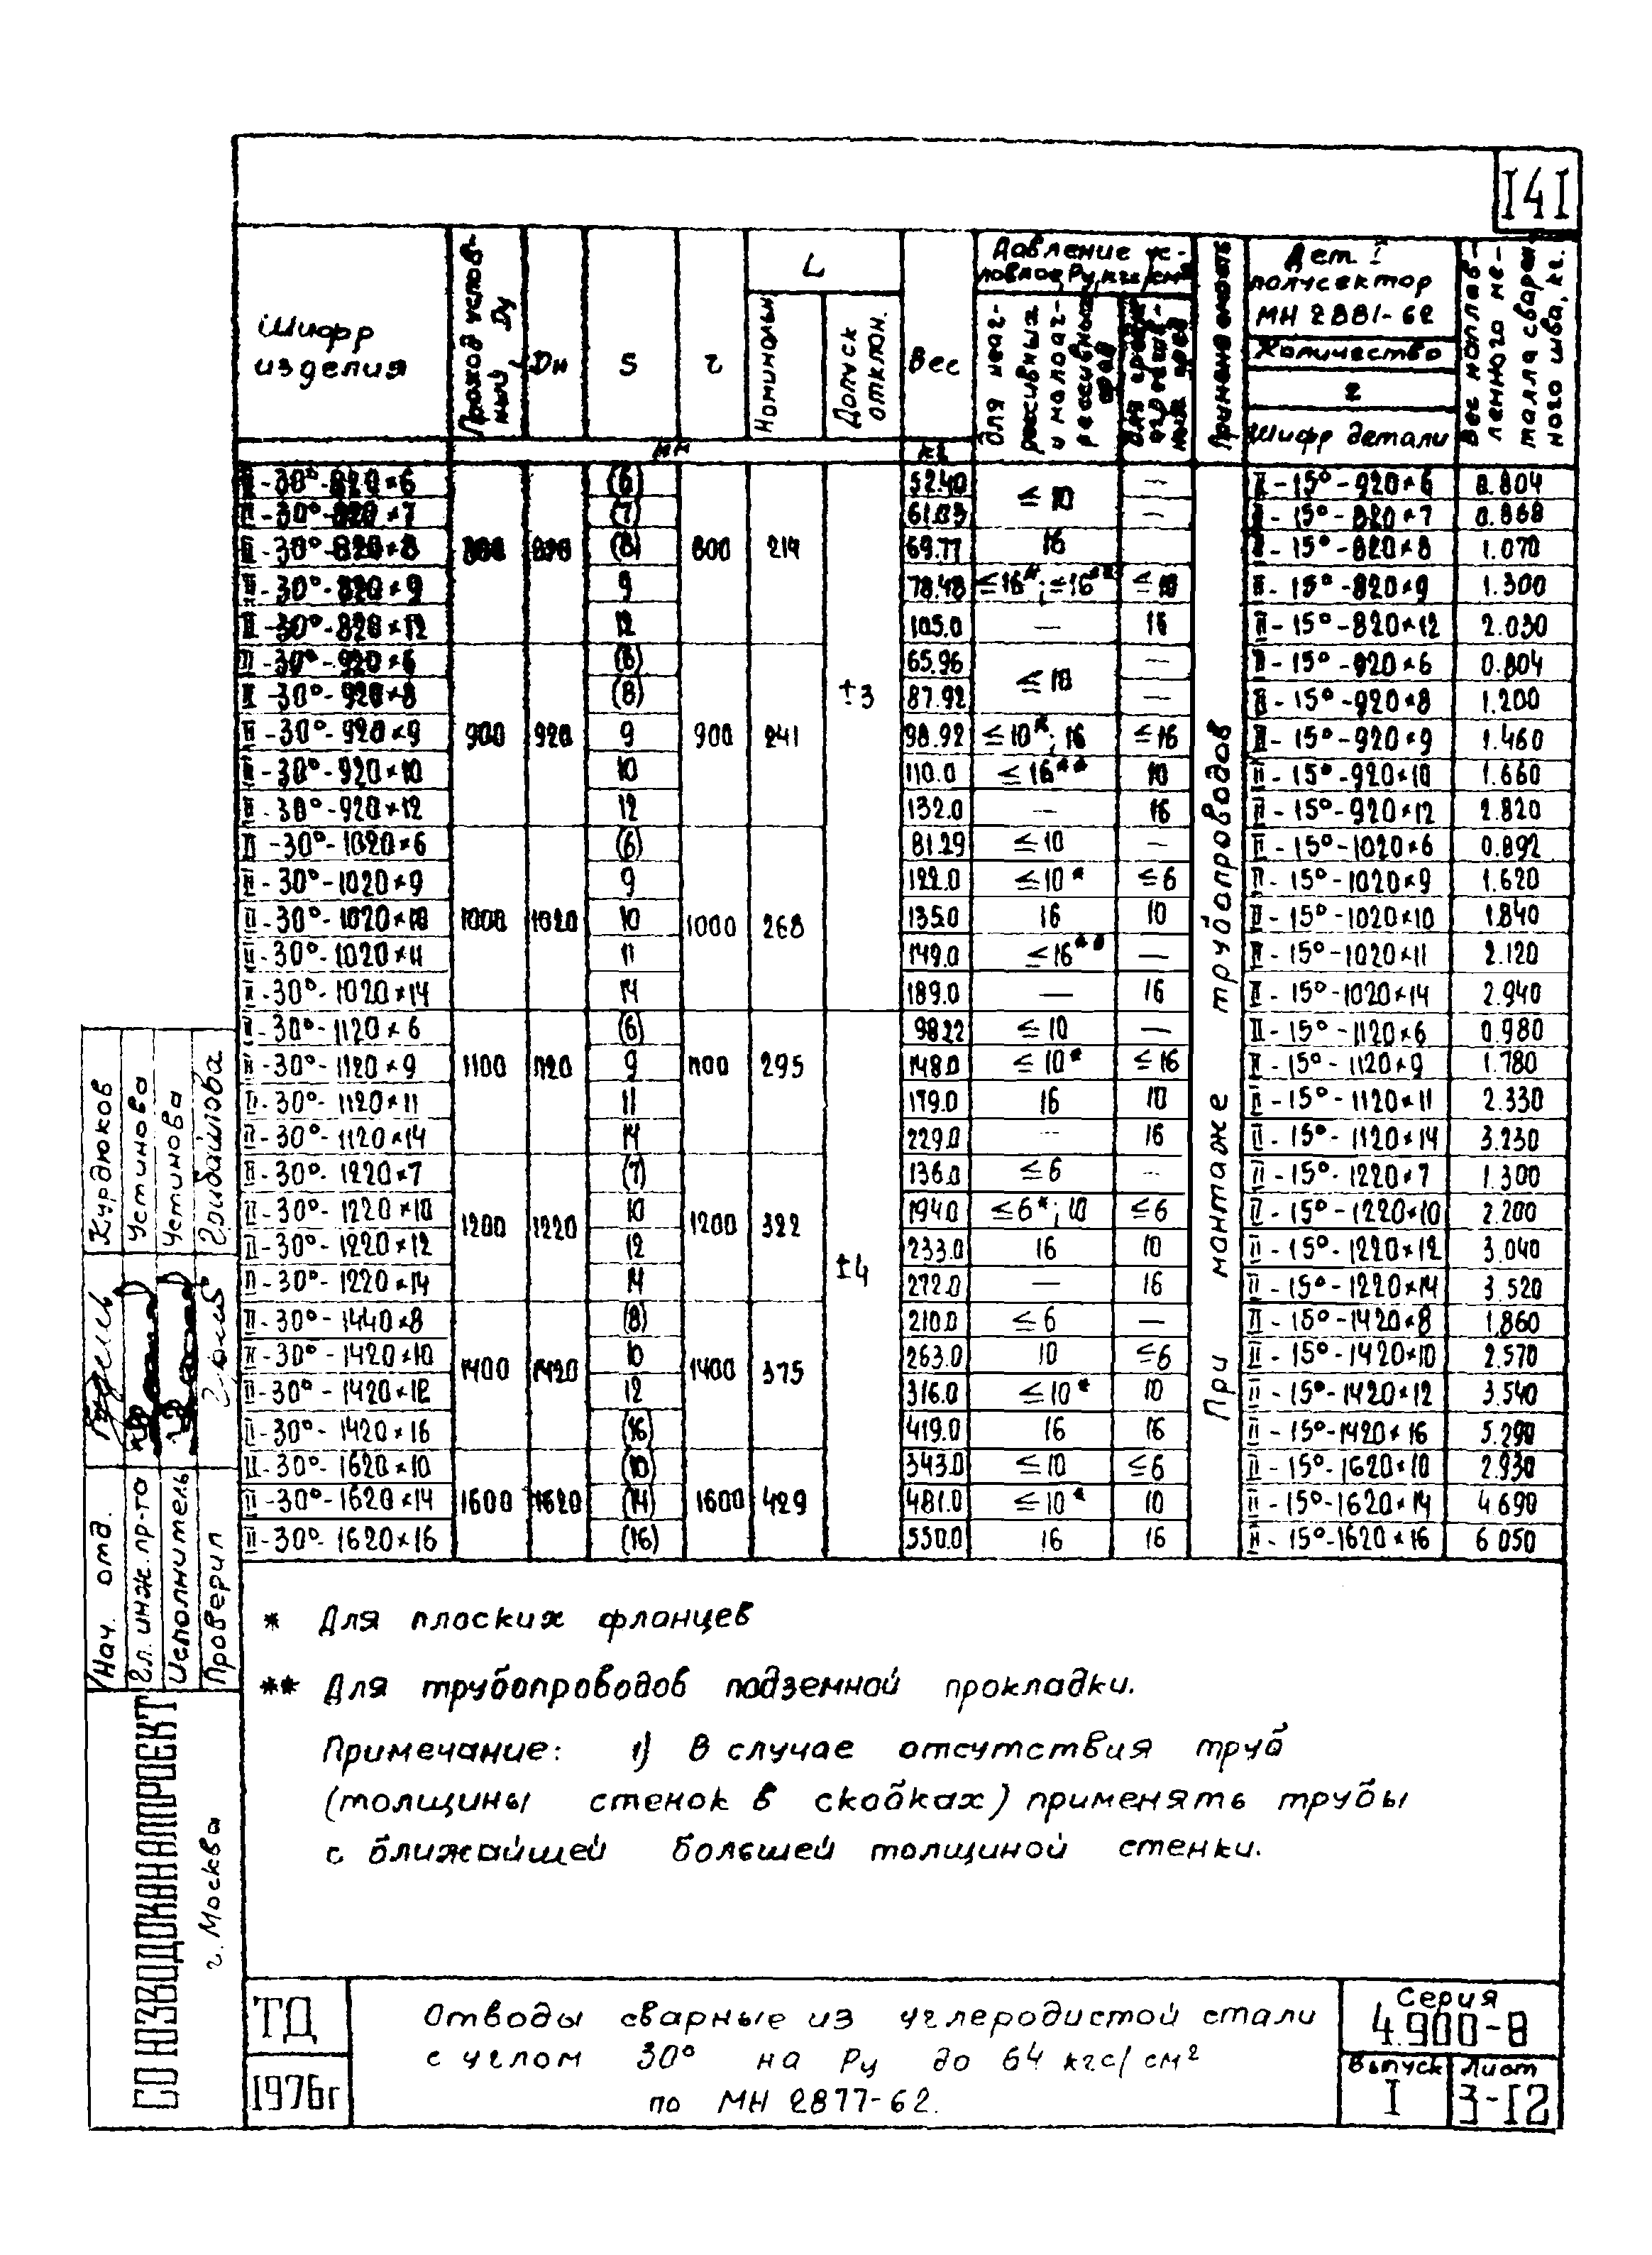 I4I
Шифр изделия
Проход условный Ду
Дн
S
r
L
Номинальн
Допуск отклон.
Вес
Давление условное, Ру, кгс/см²
для неагрессивных и малоагрессивных сред
Применяемость
Дет. I
полусектор
МН 2881-62
Количество
2
Шифр детали
Вес наплавленного металла сварного шва, кг.
мм
кг
II-30°-820×6 (6) 52.40 ≤10 — II-15°-920×6 0.804
II-30°-820×7 (7) 61.03 — II-15°-820×7 0.868
II-30°-820×8 800 820 (8) 800 214 69.77 16 II-15°-820×8 1.070
II-30°-820×9 9 78.48 ≤16*; ≤16** ≤10 II-15°-820×9 1.300
II-30°-820×12 12 105.0 — 16 II-15°-820×12 2.030
II-30°-920×6 (6) 65.96 ≤10 — II-15°-920×6 0.804
II-30°-920×8 (8) ±3 87.92 — II-15°-920×8 1.200
II-30°-920×9 900 920 9 900 241 98.92 ≤10*; 16 ≤16 II-15°-920×9 1.460
II-30°-920×10 10 110.0 ≤16** 10 II-15°-920×10 1.660
II-30°-920×12 12 132.0 — 16 II-15°-920×12 2.820
II-30°-1020×6 (6) 81.29 ≤10 — II-15°-1020×6 0.892
II-30°-1020×9 9 122.0 ≤10* ≤6 II-15°-1020×9 1.620
II-30°-1020×10 1000 1020 10 1000 268 135.0 16 10 II-15°-1020×10 1.840
II-30°-1020×11 11 149.0 ≤16** — II-15°-1020×11 2.120
II-30°-1020×14 14 189.0 — 16 II-15°-1020×14 2.940
II-30°-1120×6 (6) 98.22 ≤10 — II-15°-1120×6 0.980
II-30°-1120×9 1100 1120 9 1100 295 148.0 ≤10* ≤16 II-15°-1120×9 1.780
II-30°-1120×11 11 179.0 16 10 II-15°-1120×11 2.330
II-30°-1120×14 14 229.0 — 16 II-15°-1120×14 3.230
II-30°-1220×7 (7) 136.0 ≤6 — II-15°-1220×7 1.300
II-30°-1220×10 1200 1220 10 1200 322 194.0 ≤6*; 10 ≤6 II-15°-1220×10 2.200
II-30°-1220×12 12 ±4 233.0 16 10 II-15°-1220×12 3.040
II-30°-1220×14 14 272.0 — 16 II-15°-1220×14 3.520
II-30°-1440×8 (8) 210.0 ≤6 — II-15°-1420×8 1.860
II-30°-1420×10 1400 1420 10 1400 375 263.0 10 ≤6 II-15°-1420×10 2.570
II-30°-1420×12 12 316.0 ≤10* 10 II-15°-1420×12 3.540
II-30°-1420×16 (16) 419.0 16 16 II-15°-1420×16 5.290
II-30°-1620×10 (10) 343.0 ≤10 ≤6 II-15°-1620×10 2.930
II-30°-1620×14 1600 1620 (14) 1600 429 481.0 ≤10* 10 II-15°-1620×14 4.690
II-30°-1620×16 (16) 550.0 16 16 II-15°-1620×16 6 050
При монтаже трубопроводов
* Для плоских фланцев
** Для трубопроводов подземной прокладки.
Примечание: 1) В случае отсутствия труб
(толщины стенок в скобках) применять трубы
с ближайшей большей толщиной стенки.
Нач. отд. Курдюков
Гл. инж. пр-та Устинова
Исполнитель Устинова
Проверил Грибашова
СОЮЗВОДОКАНАЛПРОЕКТ
г. Москва
ТД
1976г
Отводы сварные из углеродистой стали
с углом 30° на Ру до 64 кгс/см²
по МН 2877-62.
Серия
4.900-8
Выпуск
I
Лист
3-12